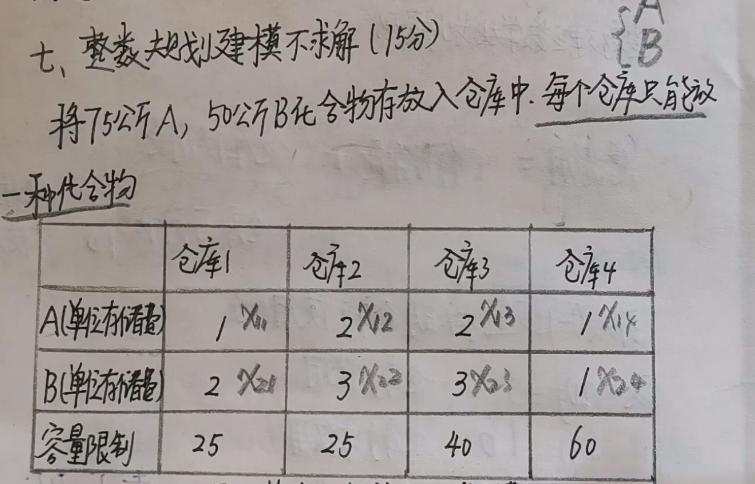 七、整数规划建模不求解(15分)
{A
{B
将75公斤A,50公斤B化合物存放入仓库中.每个仓库只能放
一种化合物
仓库1 仓库2 仓库3 仓库4
A(单位存储费) 1 X11 2 X12 2 X13 1 X14
B(单位存储费) 2 X21 3 X22 3 X23 1 X24
容量限制 25 25 40 60